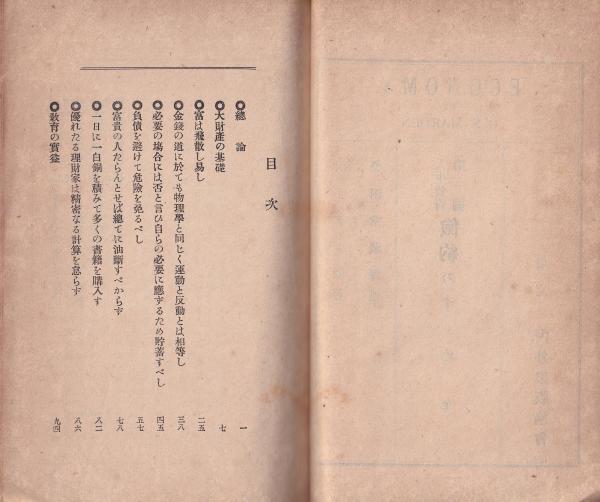 目次
◎總論 一
◎大財產の基礎 七
◎富は飛散し易し 二五
◎金錢の道に於ても物理學と同じく運動と反動とは相等し 三八
◎必要の場合には否と言ひ自らの必要に應ずるため貯蓄すべし 四五
◎負債を避けて危險を免るべし 五七
◎富貴の人たらんとせば總てに油斷すべからず 七八
◎一日に一白銅を積みて多くの書籍を購入す 八二
◎優れたる理財家は精密なる計算を怠らず 八六
◎敎育の實益 九四
ECONOM
儉約